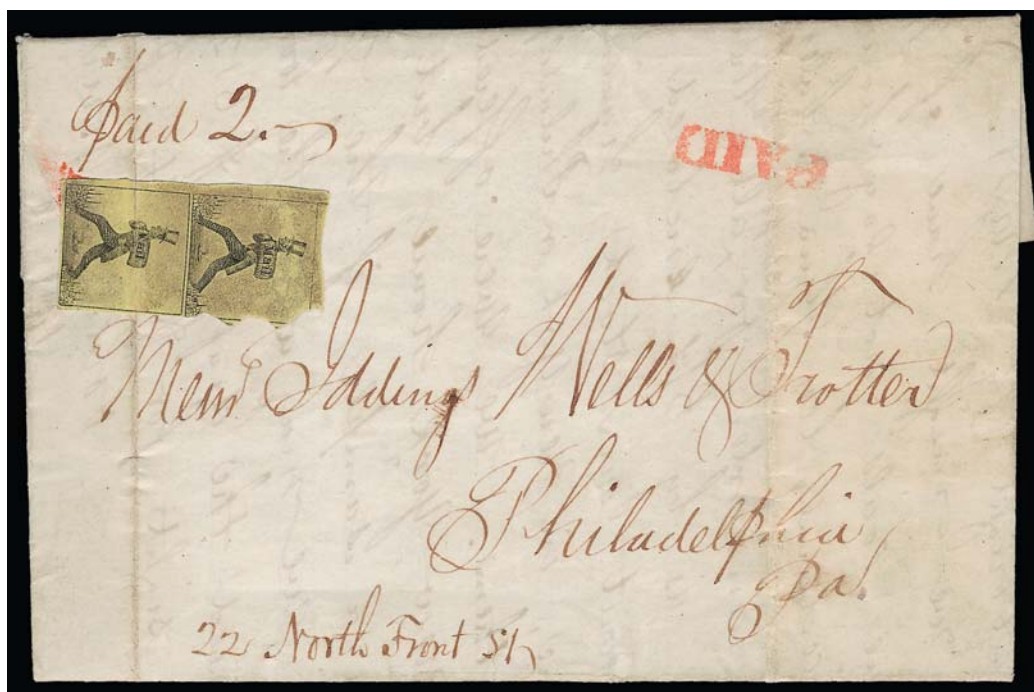 Paid 2.
PAID
MAIL
MAIL
Messrs Iddings Wells & Trotter
Philadelphia
Pa.
22 North Front St